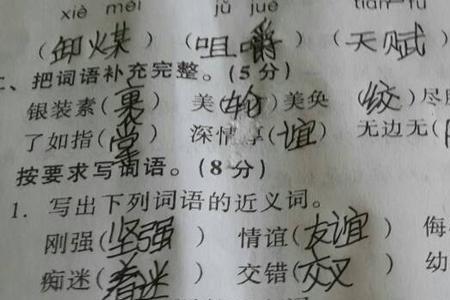 xiè méi jǔ jué tiān fù
（卸煤）（咀嚼）（天赋）
、把词语补充完整。（5分）
银装素（裹） 美（轮）美奂 （绞）尽
了如指（掌） 深情厚（谊） 无边无（
按要求写词语。（8分）
1. 写出下列词语的近义词。
刚强（坚强） 情谊（友谊） 侮
痴迷（着迷） 交错（交叉） 幼